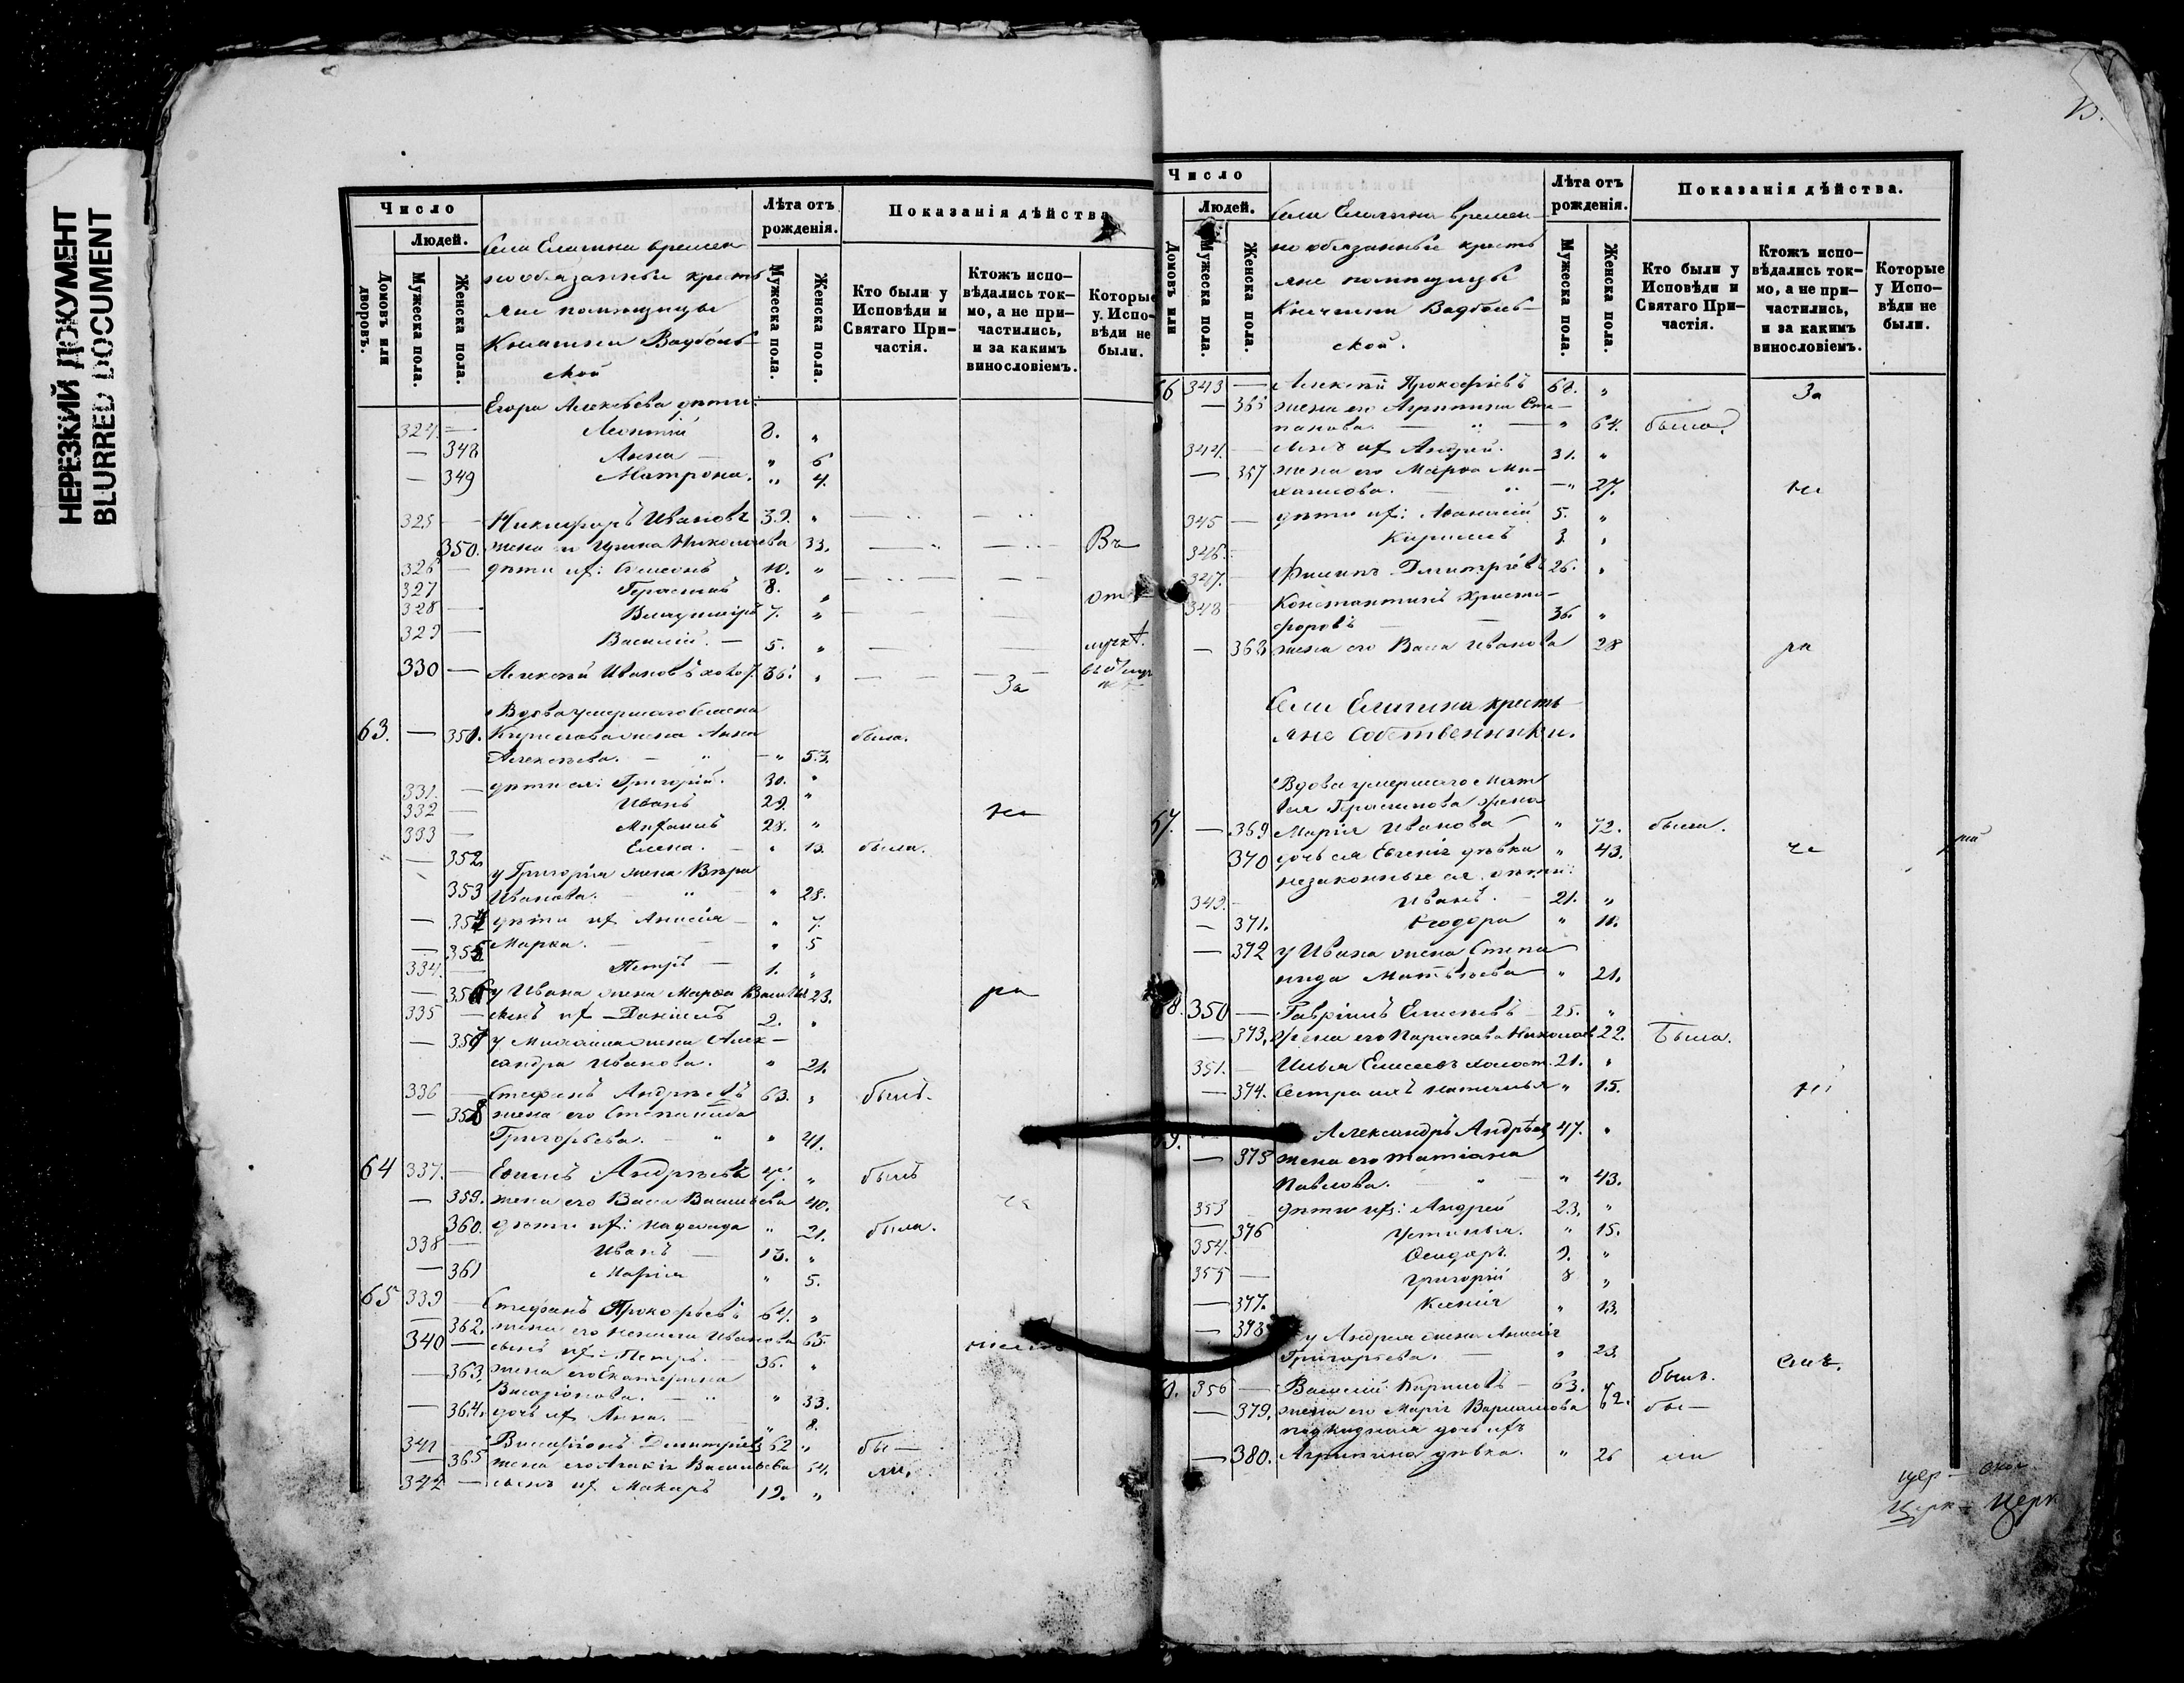 НЕРЕЗКИЙ ДОКУМЕНТ
BLURRED DOCUMENT
Число
Домовъ или дворовъ.
Людей.
Мужеска пола.
Женска пола.
Села времен
нообязанные кресть
яне помѣщицы
Вадболь
ской
Лѣта отъ рожденія.
Мужеска пола.
Женска пола.
Показанія дѣйства
Кто были у Исповѣди и Святаго Причастія.
Ктожъ исповѣдались токмо, а не причастились, и за какимъ винословіемъ.
Которые у Исповѣди не были.
Егора Алексѣева дѣти:
324. — Леонтій 8. „
— 348 Анна — „ 6
— 349 Матрона. „ 4.
325 — Никифоръ Ивановъ 39. „
350. жена Николаева 33. Въ
326 — дѣти их: Симеонъ 10. „
327 Герасимъ 8. „
328 — Владиміръ 7. „
329 — Василій. — 5. „
330 — Алексѣй Ивановъ холос. 36. „ За
Вдова умершаго
63. — 351. Кирилова жена Анна была.
Алексѣева. — „ 53.
331. — дѣти ея: Григорій. 30. „
332 — Иванъ 29. „
333 — Михаилъ 28. „
— 352 Елена. — „ 13. была.
у Григорія жена Вѣра
353 Иванова. „ 28.
— 354 дѣти их Анисія — „ 7.
— 355 Марѳа. — „ 5
334. — Петръ — 1. „
— 356 у Ивана жена Марѳа 23. ра
335 — сынъ их — Даніилъ 2. „
— 357 у Михаила жена Алек—
сандра Иванова. „ 21.
336 — Стефанъ Андреевъ 63. „ былъ.
— 358 жена его Степанида
Григорьева. — „ 41.
64 337. — Андреевъ „ былъ
— 359. жена его Васса Васильева 40.
360. дѣти их: Надежда „ 21. была.
338 — Иванъ — 13. „
— 361 Марія „ 5.
65 339 — Стефанъ Прокофьевъ 64. „
— 362. жена его Иванова 65.
340 — сынъ их Петръ. — 36. „
— 363. жена его Екатерина
Висаріонова. — „ 33.
— 364. дочь их Анна. — „ 8.
341 — Висаріонъ Димитріевъ 62 „ бы—
— 365 жена его Васильева 54. ли.
342 — сынъ их Макаръ 19. „
Число
Домовъ или
Людей.
Мужеска пола.
Женска пола.
Села времен—
нообязанные кресть
яне помѣщицы
Княгини Вадболь—
ской.
Лѣта отъ рожденія.
Мужеска пола.
Женска пола.
Показанія дѣйства.
Кто были у Исповѣди и Святаго Причастія.
Ктожъ исповѣдались токмо, а не причастились, и за какимъ винословіемъ.
Которые у Исповѣди не были.
6 343 — Алексѣй Прокофіевъ 62. „ За
— жена его Агрипина Сте—
панова. — „ 64. была.
344. — сынъ их Андрей. 31. „
— 357 жена его Марѳа Ми—
хаилова. — „ 27.
345 — дѣти их: Аѳанасій 5. „
346. Кирилъ 3. „
347. Филипъ Дмитріевъ 26. „
348 Константинъ Христо—
форовъ — 36. „
— 368 жена его Васса Иванова 28 ра
Села кресть—
яне собственники.
Вдова умершаго Мат
вея Герасимова жена
67. — 369 Марія Иванова „ 72. была.
370 дочь ея Евгенія дѣвка „ 43.
незаконные ея дѣти:
349. — Иванъ. — 21. „
— 371. Ѳеодора „ 10.
— 372 у Ивана жена Степа
нида Матвѣева — „ 21.
68. 350 — Гавріилъ Елисеевъ 25. „
— 373. жена его Параскева 22. Была.
351. — Илья Елисеевъ холост. 21. „
— 374. Сестра ихъ Наталья „ 15.
Александръ Андрѣевъ 47. „
— 375 жена его Татіана
Павлова. — „ 43.
353 дѣти их: Андрей 23. „
— 376 Устинья. „ 15.
354. Ѳеодоръ 9. „
355 — Григорій 8 „
— 377. Ксенія „ 13.
— 378 у Андрея жена Анисія
Григорьева. — „ 23.
356 — Василій Кириловъ — 63. „ былъ.
— 379. жена его Марія Варлаамова 62. бы—
дочь ихъ
— 380. Агрипина дѣвка. „ 26 ли
Церк — Церк